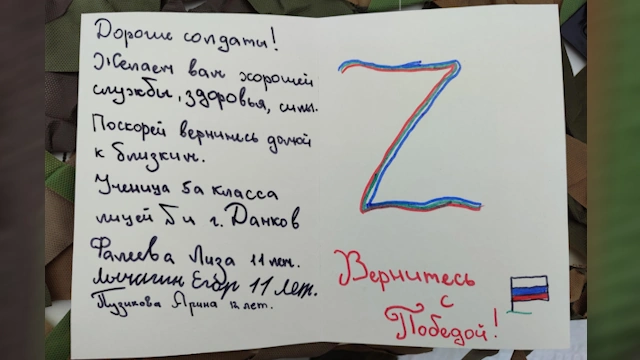 Дорогие солдаты!
Желаем вам хорошей
службы, здоровья, силы.
Поскорей вернитесь домой
к близким.
Ученица 5а класса
лицей №4 г. Данков
Фалеева Лиза 11 лет.
Лычагин Егор 11 лет.
Пузикова Арина 12 лет.
Z
Вернитесь
с
Победой!